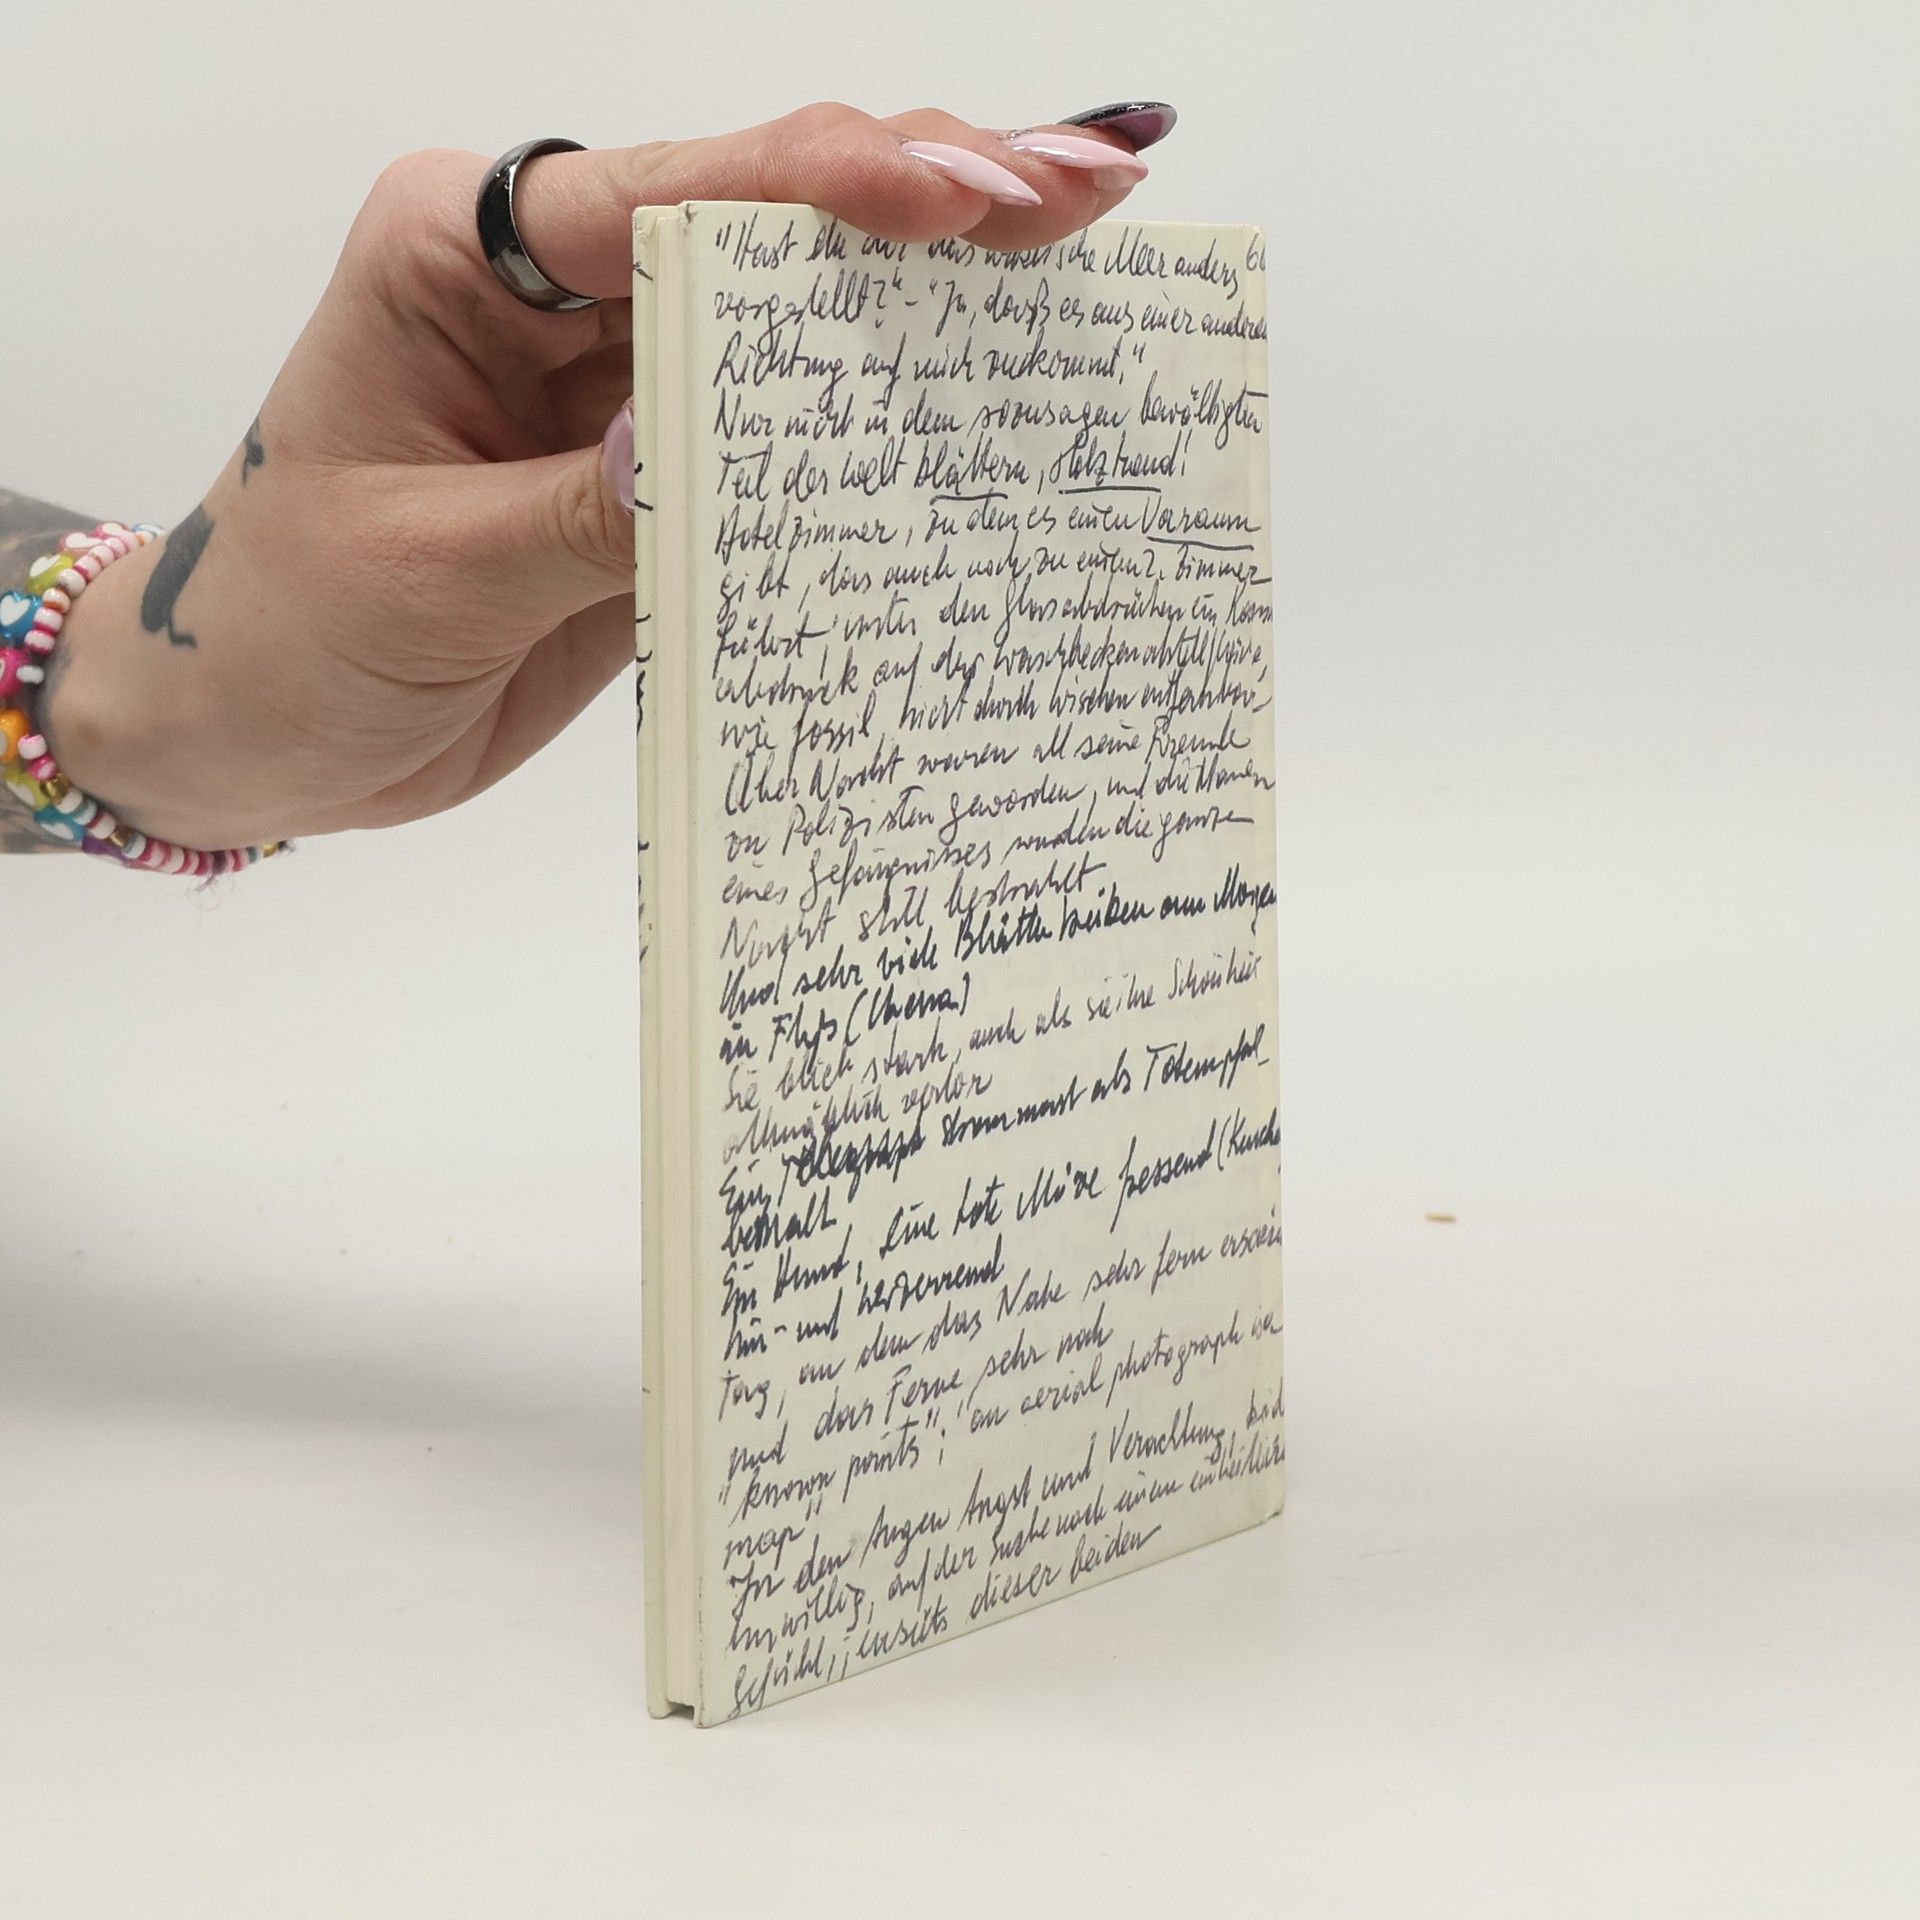 "Hast du dir das        Meer anders 60
vorgestellt?" - "Ja, daß es aus einer anderen
Richtung auf mich zukommt."
Nur nicht in dem sozusagen bewältigten
Teil der Welt blättern, Holztrand!
Hotelzimmer, zu dem es einen Vorraum
gibt, das auch noch zu einem 2. Zimmer
führt, unter den Glasabdrücken ein
abdruck auf der Waschbeckenabstell
wie fossil, nicht durch Wischen entfernbar
Über Nacht waren all seine Freunde
zu Polizisten geworden, und die Mauern
eines Gefängnisses wurden die ganze
Nacht still bestrahlt
Und sehr viele Blätter treiben am Morgen
im Fluß
Sie blieb stark, auch als sie ihre Schönheit
allmählich verlor
Ein Strommast als Totempfahl
bemalt
Ein Hund, eine tote Möve fressend
hin- und herzerrend
Tag, an dem das Nahe sehr fern
und das Ferne sehr nah
"known points"; "an aerial photograph is a
map"
In den Augen Angst und Verachtung,
unwillig, auf der Suche nach einem
Gefühl, jenseits dieser beiden